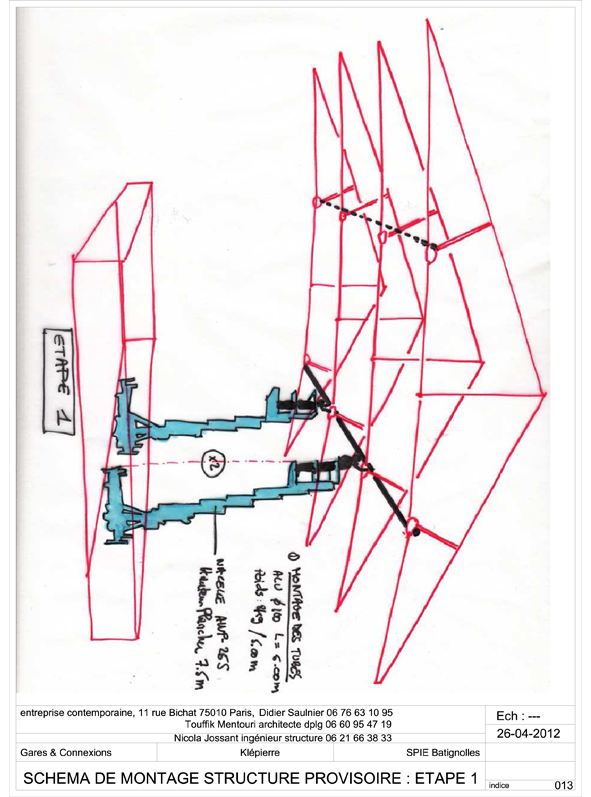 ETAPE 1
x2
① MONTAGE DES TUBES
ALU Ø100 L = 6.00m
Poids: 8kg / 6.00m
NACELLE AWP 25S
Hauteur Plancher 7.5m
entreprise contemporaine, 11 rue Bichat 75010 Paris, Didier Saulnier 06 76 63 10 95
Touffik Mentouri architecte dplg 06 60 95 47 19
Nicola Jossant ingénieur structure 06 21 66 38 33
Ech : ---
26-04-2012
Gares & Connexions
Klépierre
SPIE Batignolles
SCHEMA DE MONTAGE STRUCTURE PROVISOIRE : ETAPE 1
indice
013